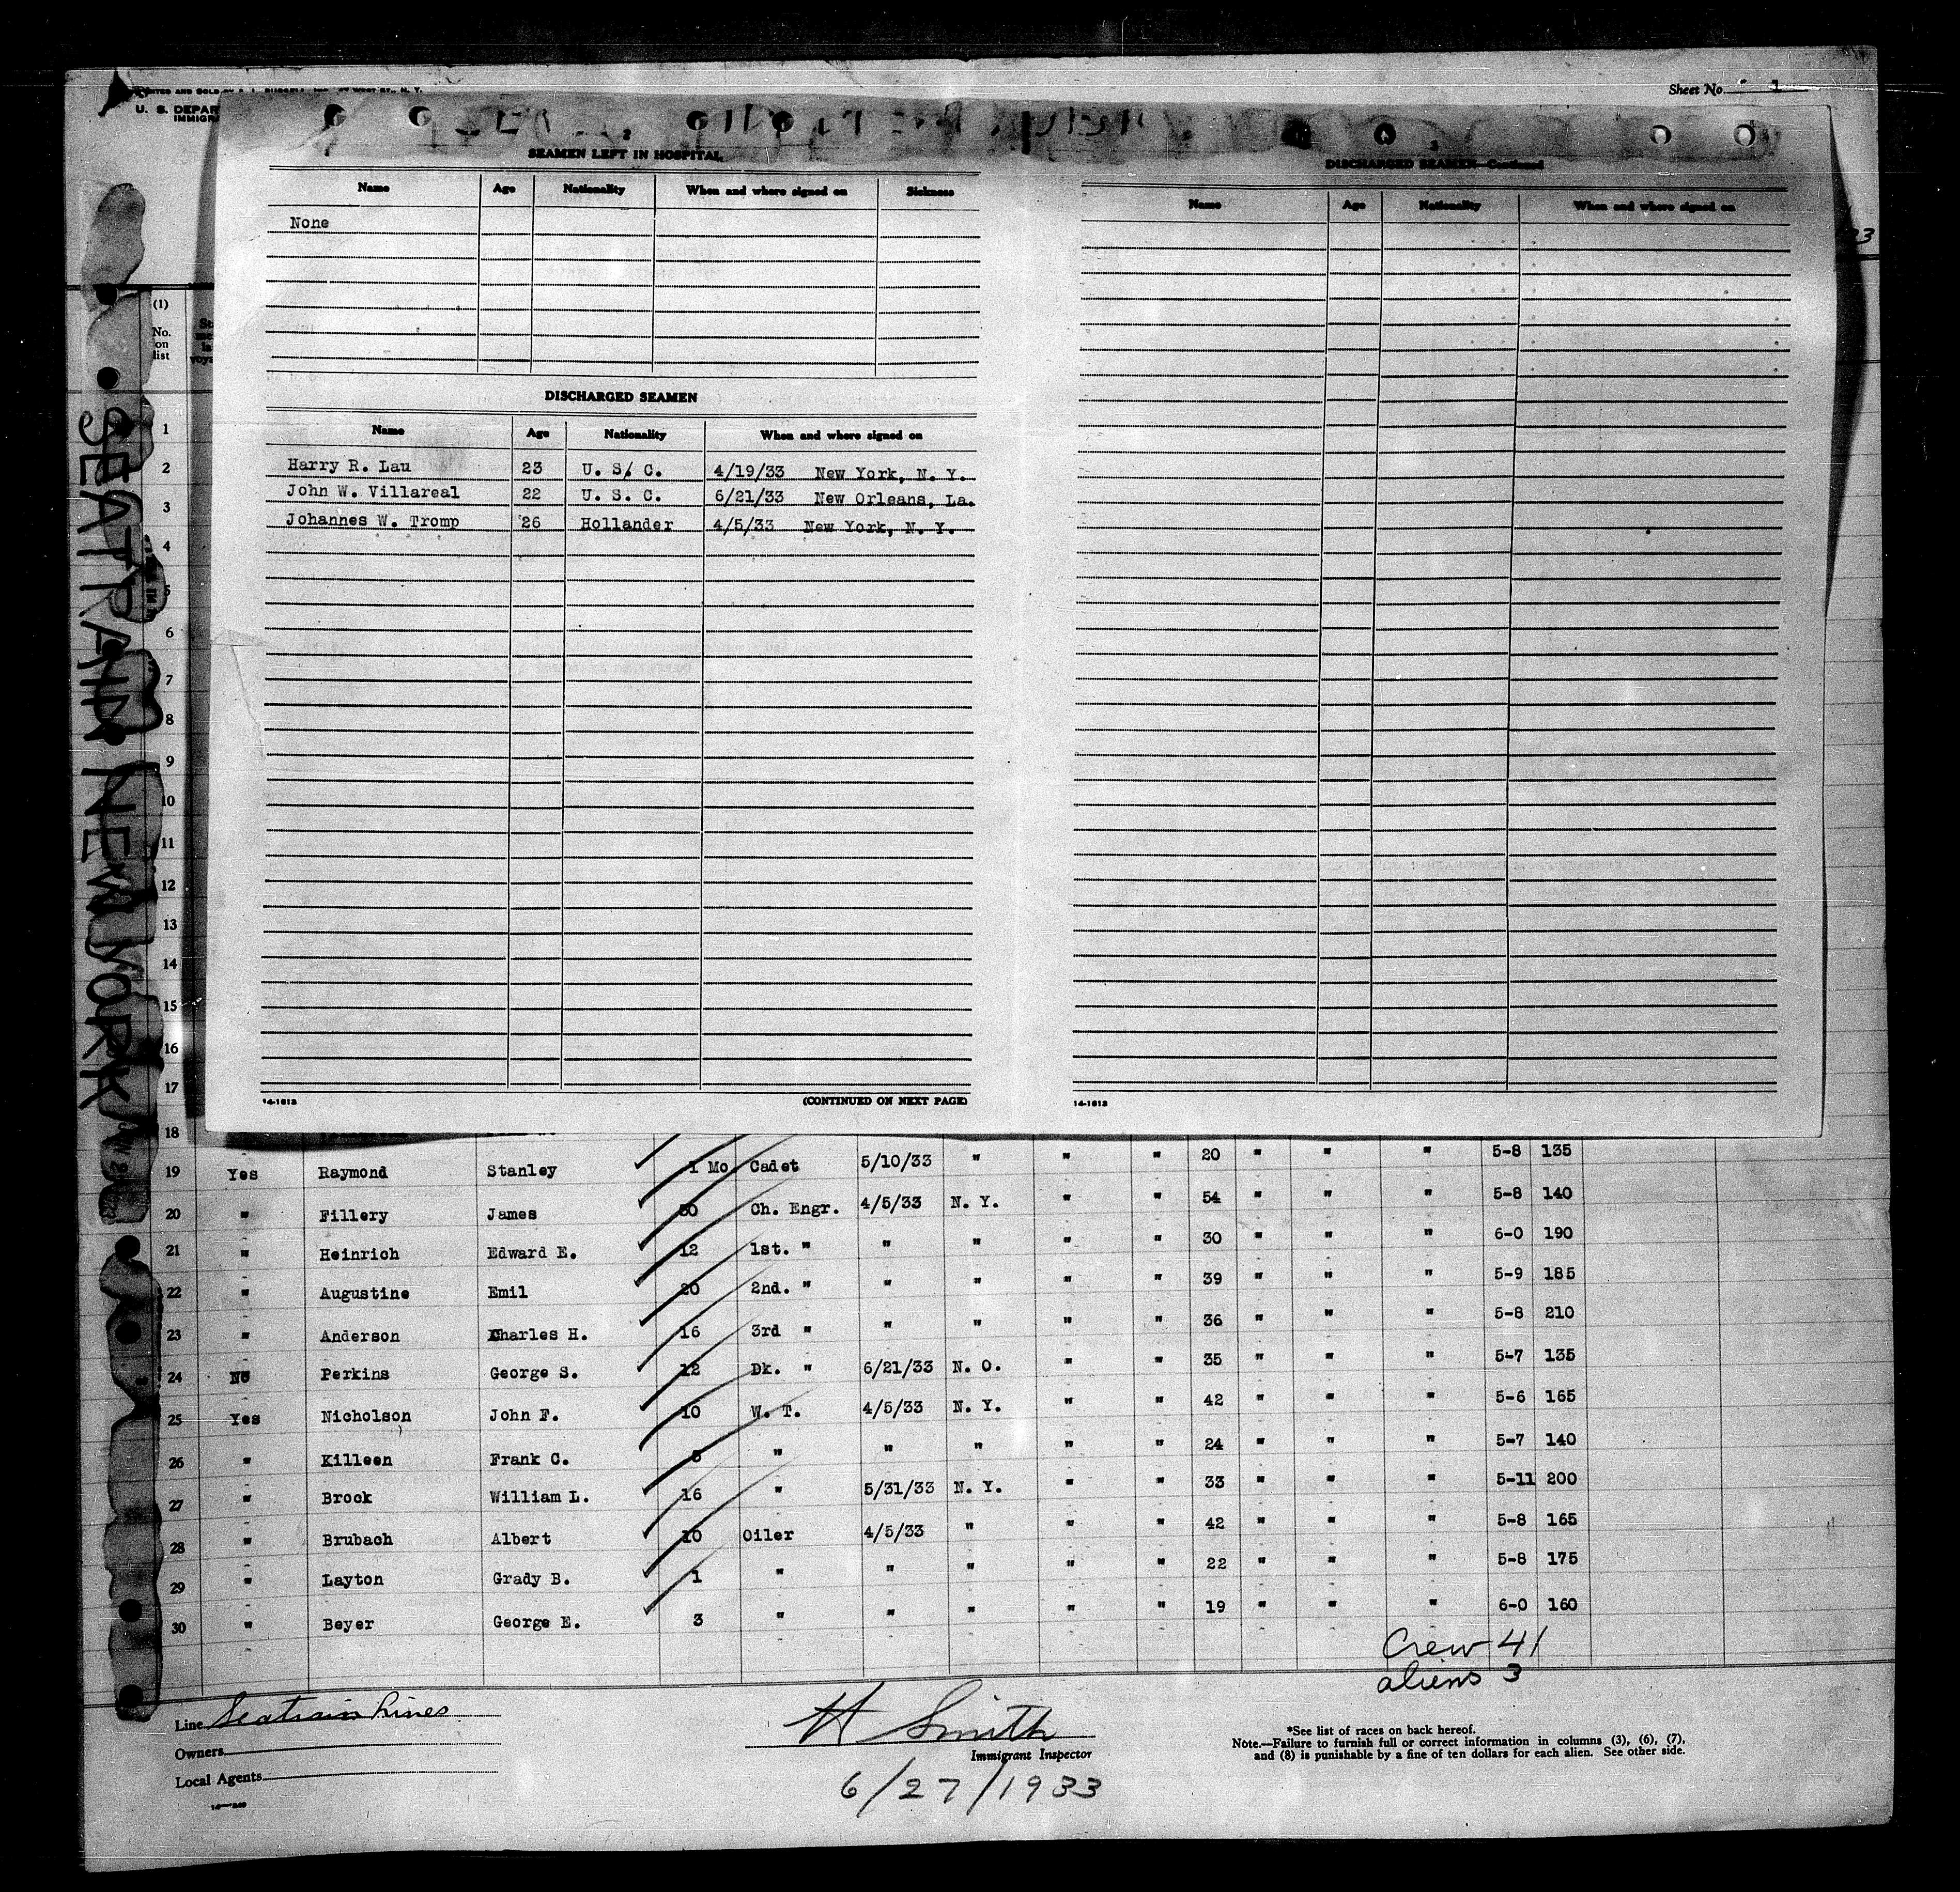 PRINTED AND SOLD BY
Sheet No. 1
U. S. DEPAR
IMMIGR
2
SEAMEN LEFT IN HOSPITAL
Name Age Nationality When and where signed on Sickness
None
DISCHARGED SEAMEN
Name Age Nationality When and where signed on
Harry R. Lau 23 U. S. C. 4/19/33 New York, N. Y.
John W. Villareal 22 U. S. C. 6/21/33 New Orleans, La.
Johannes W. Tromp 26 Hollander 4/5/33 New York, N. Y.
14-1613 (CONTINUED ON NEXT PAGE)
3
DISCHARGED SEAMEN—Continued
Name Age Nationality When and where signed on
14-1613
(1)
No. on list
SEATRAIN NEW YORK
1
2
3
4
5
6
7
8
9
10
11
12
13
14
15
16
17
18
19 Yes Raymond Stanley 1 Mo Cadet 5/10/33 " " " 20 " " " 5-8 135
20 " Fillery James 30 Ch. Engr. 4/5/33 N. Y. " " 54 " " " 5-8 140
21 " Heinrich Edward E. 12 1st. " " " " " 30 " " " 6-0 190
22 " Augustine Emil 20 2nd. " " " " " 39 " " " 5-9 185
23 " Anderson Charles H. 16 3rd " " " " " 36 " " " 5-8 210
24 No Perkins George S. 12 Dk. " 6/21/33 N. O. " " 35 " " " 5-7 135
25 Yes Nicholson John F. 10 W. T. 4/5/33 N. Y. " " 42 " " " 5-6 165
26 " Killeen Frank C. " " " " " 24 " " " 5-7 140
27 " Brock William L. 16 " 5/31/33 N. Y. " " 33 " " " 5-11 200
28 " Brubach Albert 10 Oiler 4/5/33 " " " 42 " " " 5-8 165
29 " Layton Grady B. 1 " " " " " 22 " " " 5-8 175
30 " Beyer George E. 3 " " " " " 19 " " " 6-0 160
Crew 41
aliens 3
Line Seatrain Lines
Owners
Local Agents
H Smith
Immigrant Inspector
6/27/1933
*See list of races on back hereof.
Note.—Failure to furnish full or correct information in columns (3), (6), (7),
and (8) is punishable by a fine of ten dollars for each alien. See other side.